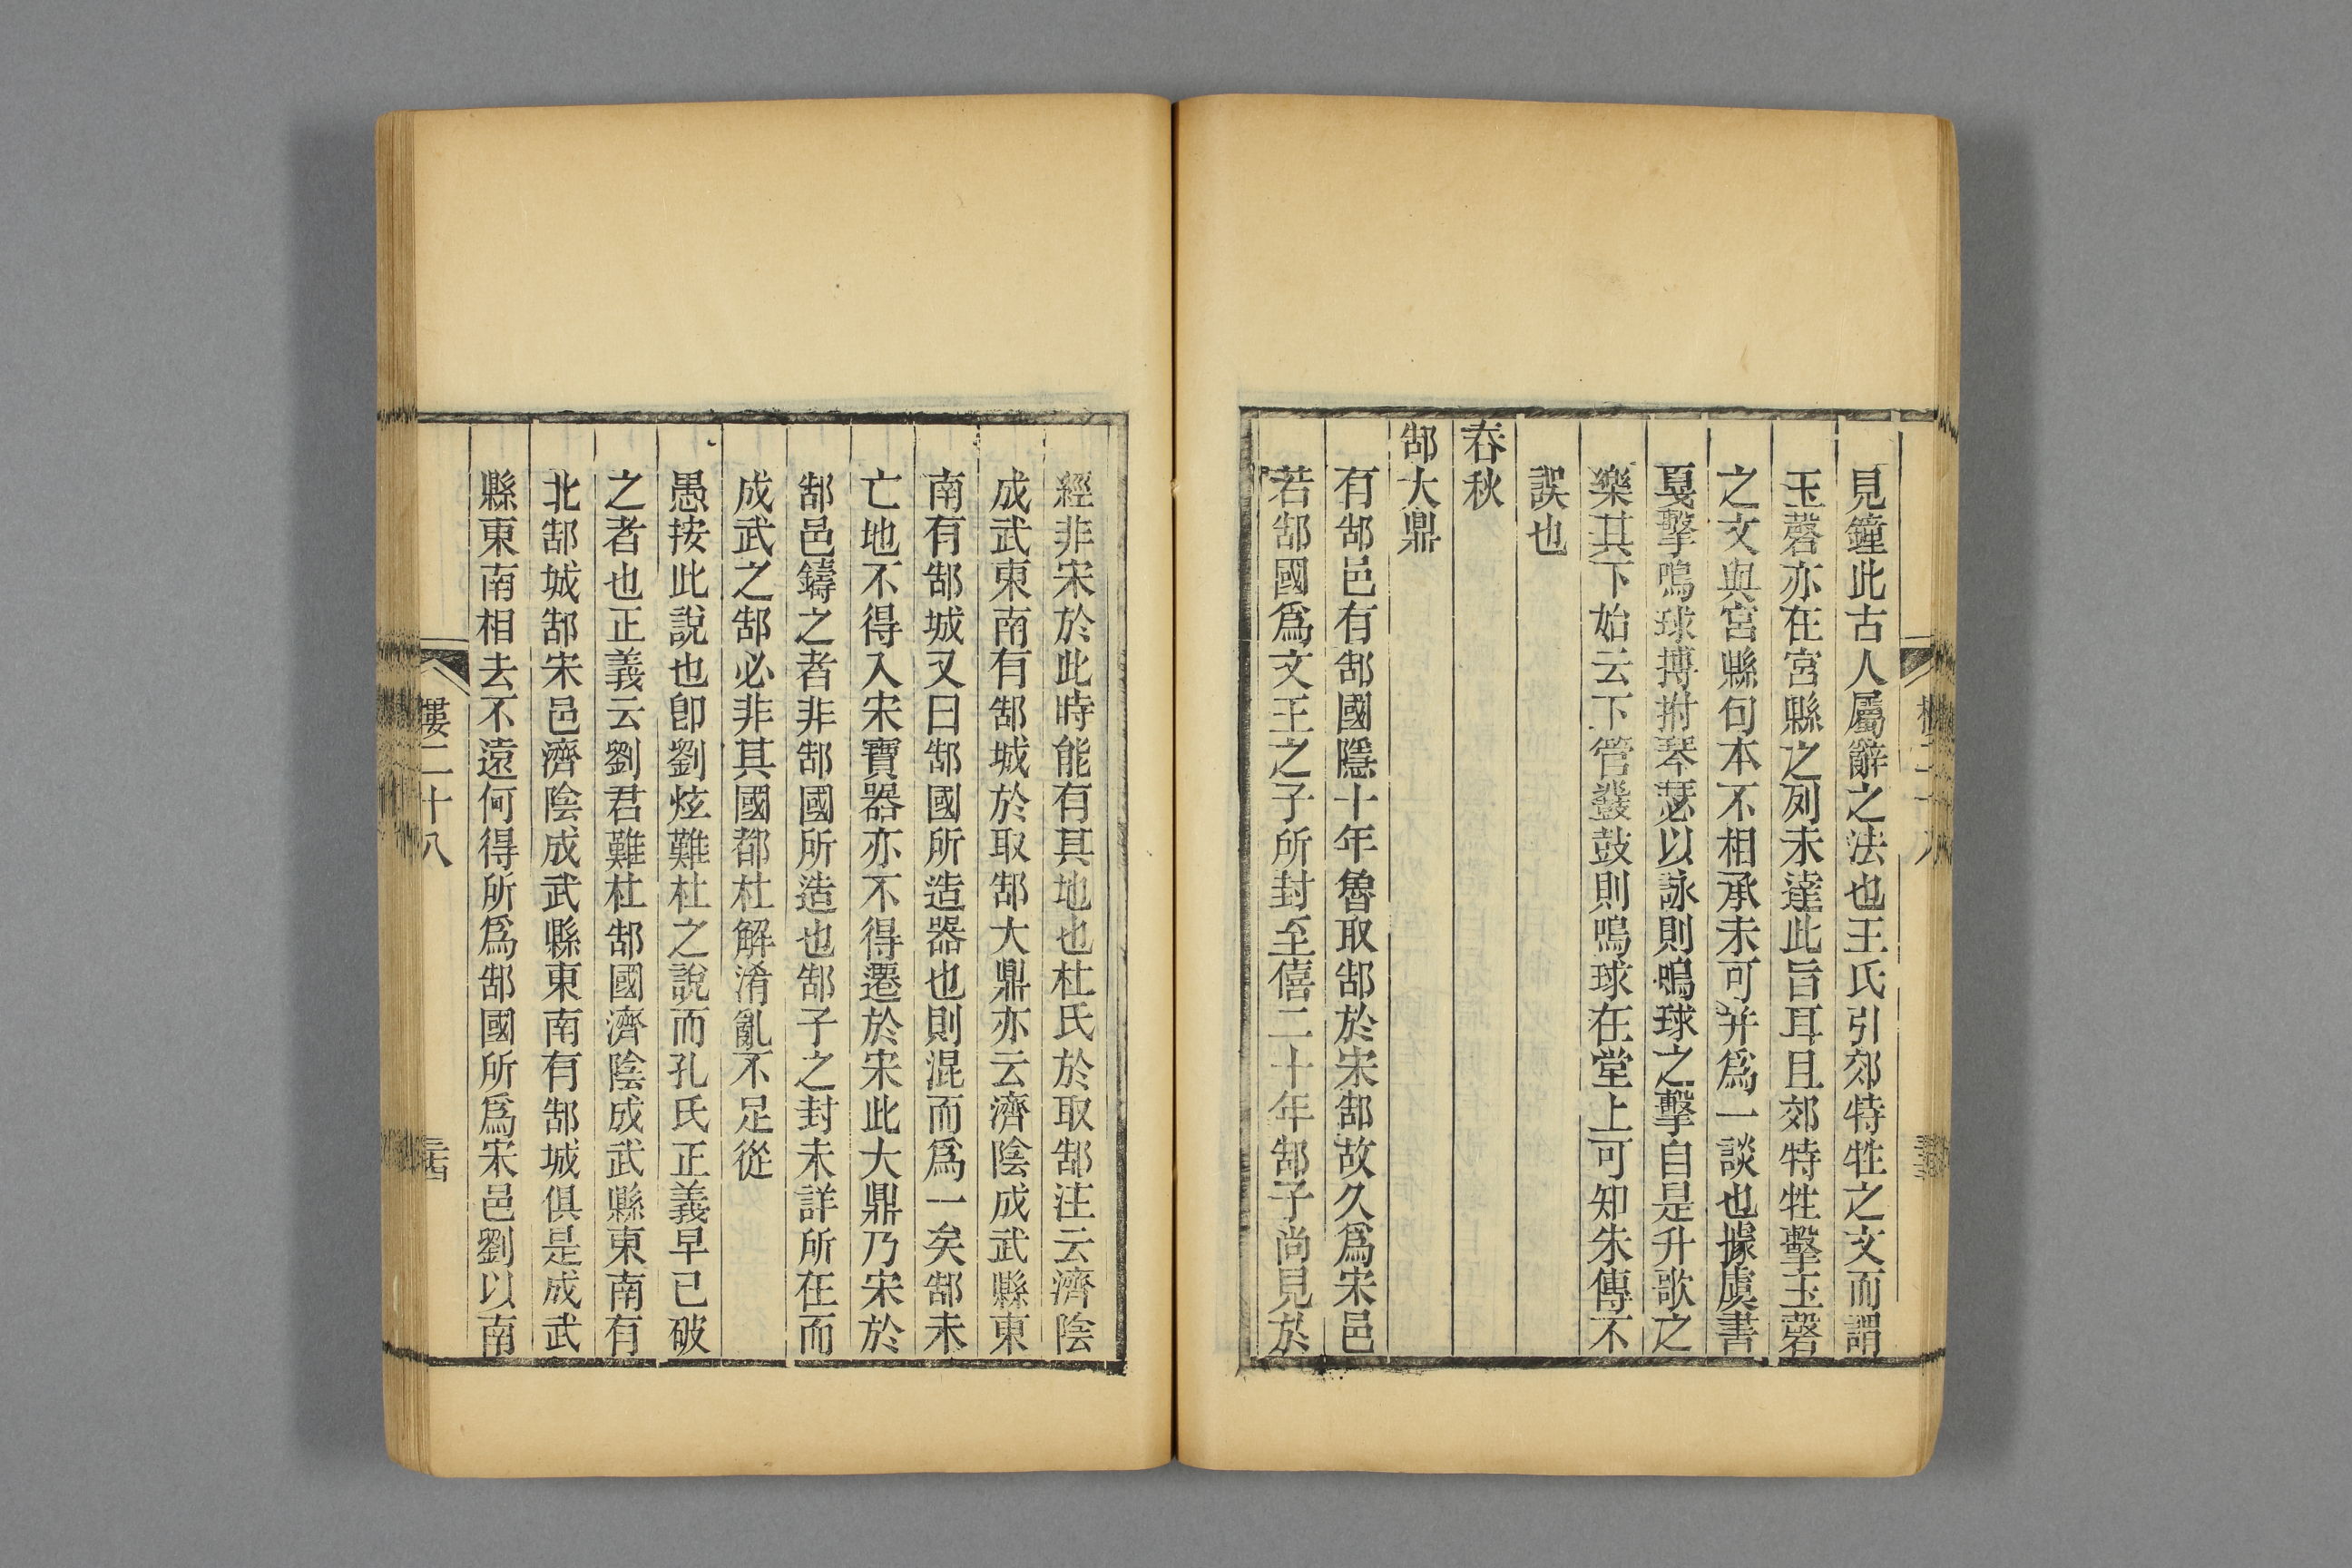 見鐘此古人屬辭之法也王氏引郊特牲之文而謂
玉磬亦在宮縣之列未達此旨耳且郊特牲擊玉磬
之文與宮縣句本不相承未可并爲一談也據虞書
戛擊鳴球搏拊琴瑟以詠則鳴球之擊自是升歌之
樂其下始云下管鼗鼓則鳴球在堂上可知朱傳不
誤也
春秋
郜大鼎
有郜邑有郜國隱十年魯取郜於宋郜故久爲宋邑
若郜國爲文王之子所封至僖二十年郜子尚見於
經非宋於此時能有其地也杜氏於取郜注云濟陰
成武東南有郜城於取郜大鼎亦云濟陰成武縣東
南有郜城又曰郜國所造器也則混而爲一矣郜未
亡地不得入宋寶器亦不得遷於宋此大鼎乃宋於
郜邑鑄之者非郜國所造也郜子之封未詳所在而
成武之郜必非其國都杜解淆亂不足從
愚按此說也卽劉炫難杜之說而孔氏正義早已破
之者也正義云劉君難杜郜國濟陰成武縣東南有
北郜城郜宋邑濟陰成武縣東南有郜城俱是成武
縣東南相去不遠何得所爲郜國所爲宋邑劉以南
樓二十八
三十四